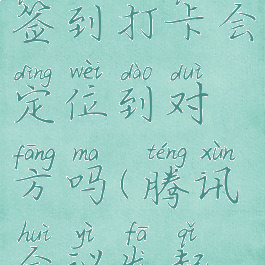 签到打卡会
dìng wèi dào duì
定位到对
fāng ma téng xùn
方吗(腾讯
huì yì fā qǐ
会议发起